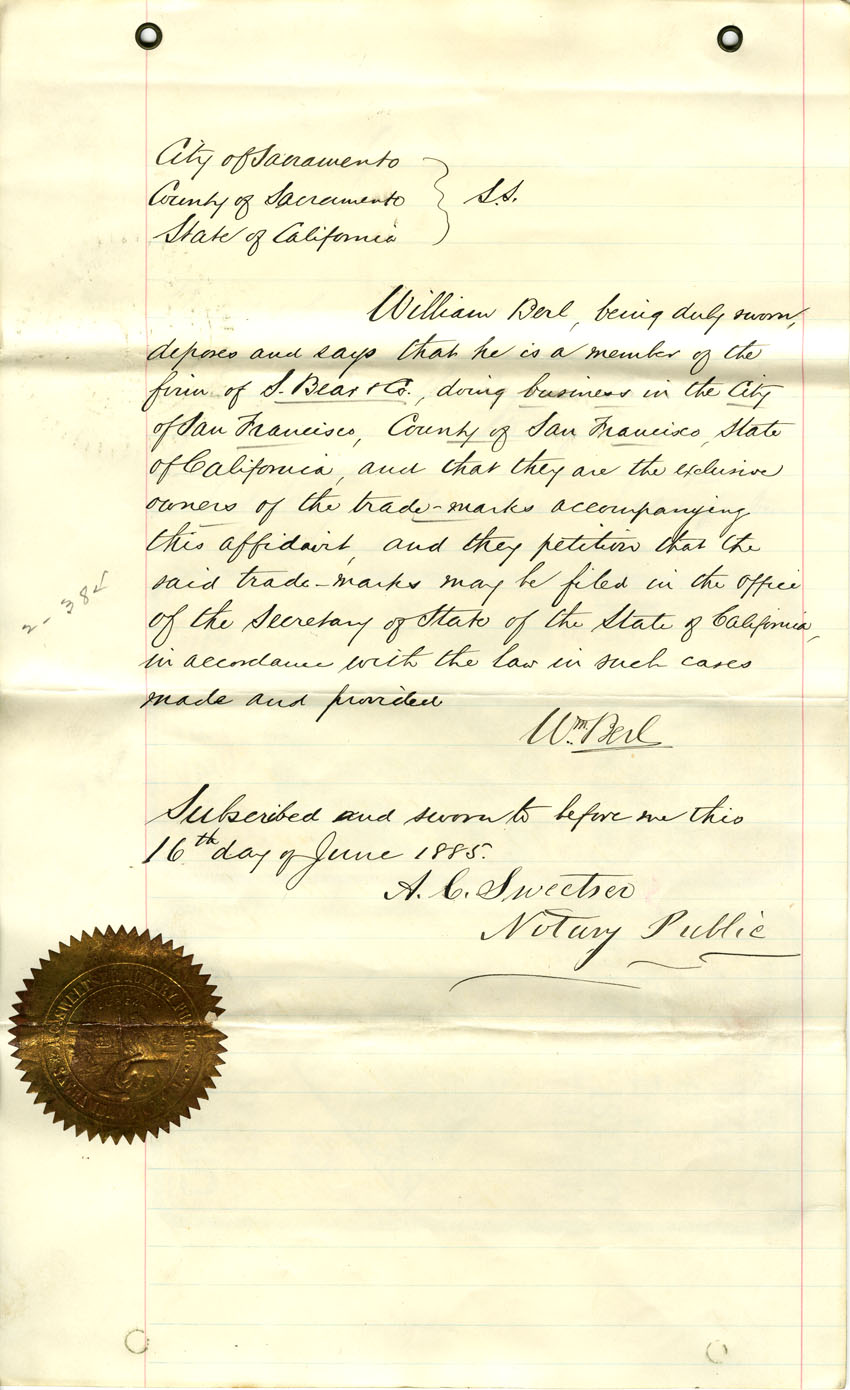 City of Sacramento
County of Sacramento } S.S.
State of California
William Berl, being duly sworn,
deposes and says that he is a member of the
firm of S. Bear & Co., doing business in the City
of San Francisco, County of San Francisco, State
of California, and that they are the exclusive
owners of the trade-marks accompanying
this affidavit, and they petition that the
said trade-marks may be filed in the office
of the Secretary of State of the State of California,
in accordance with the law in such cases
made and provided
Wm. Berl
Subscribed and sworn to before me this
16th day of June 1885.
A. C. Sweetser
Notary Public